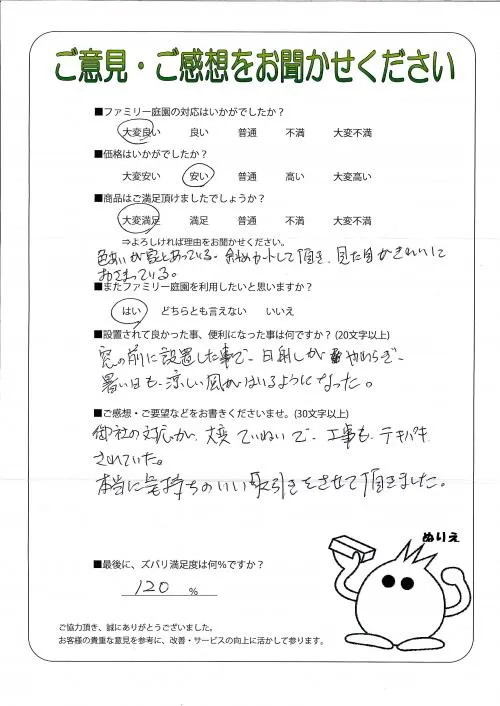 ご意見・ご感想をお聞かせください
■ファミリー庭園の対応はいかがでしたか？
大変良い 良い 普通 不満 大変不満
■価格はいかがでしたか？
大変安い 安い 普通 高い 大変高い
■商品はご満足頂けましたでしょうか？
大変満足 満足 普通 不満 大変不満
⇒よろしければ理由をお聞かせください。
色あいが家とあっている。斜めカットして頂き、見た目がきれいに
おさまっている。
■またファミリー庭園を利用したいと思いますか？
はい どちらとも言えない いいえ
■設置されて良かった事、便利になった事は何ですか？(20文字以上)
窓の前に設置した事で、日射しが やわらぎ、
暑い日も、涼しい風がはいるようになった。
■ご感想・ご要望などをお書きくださいませ。(30文字以上)
御社の対応が、大変ていねいで、工事も、テキパキ
されていた。
本当に気持ちのいい取引きをさせて頂きました。
ぬりえ
■最後に、ズバリ満足度は何％ですか？
120 ％
ご協力頂き、誠にありがとうございました。
お客様の貴重な意見を参考に、改善・サービスの向上に活かして参ります。